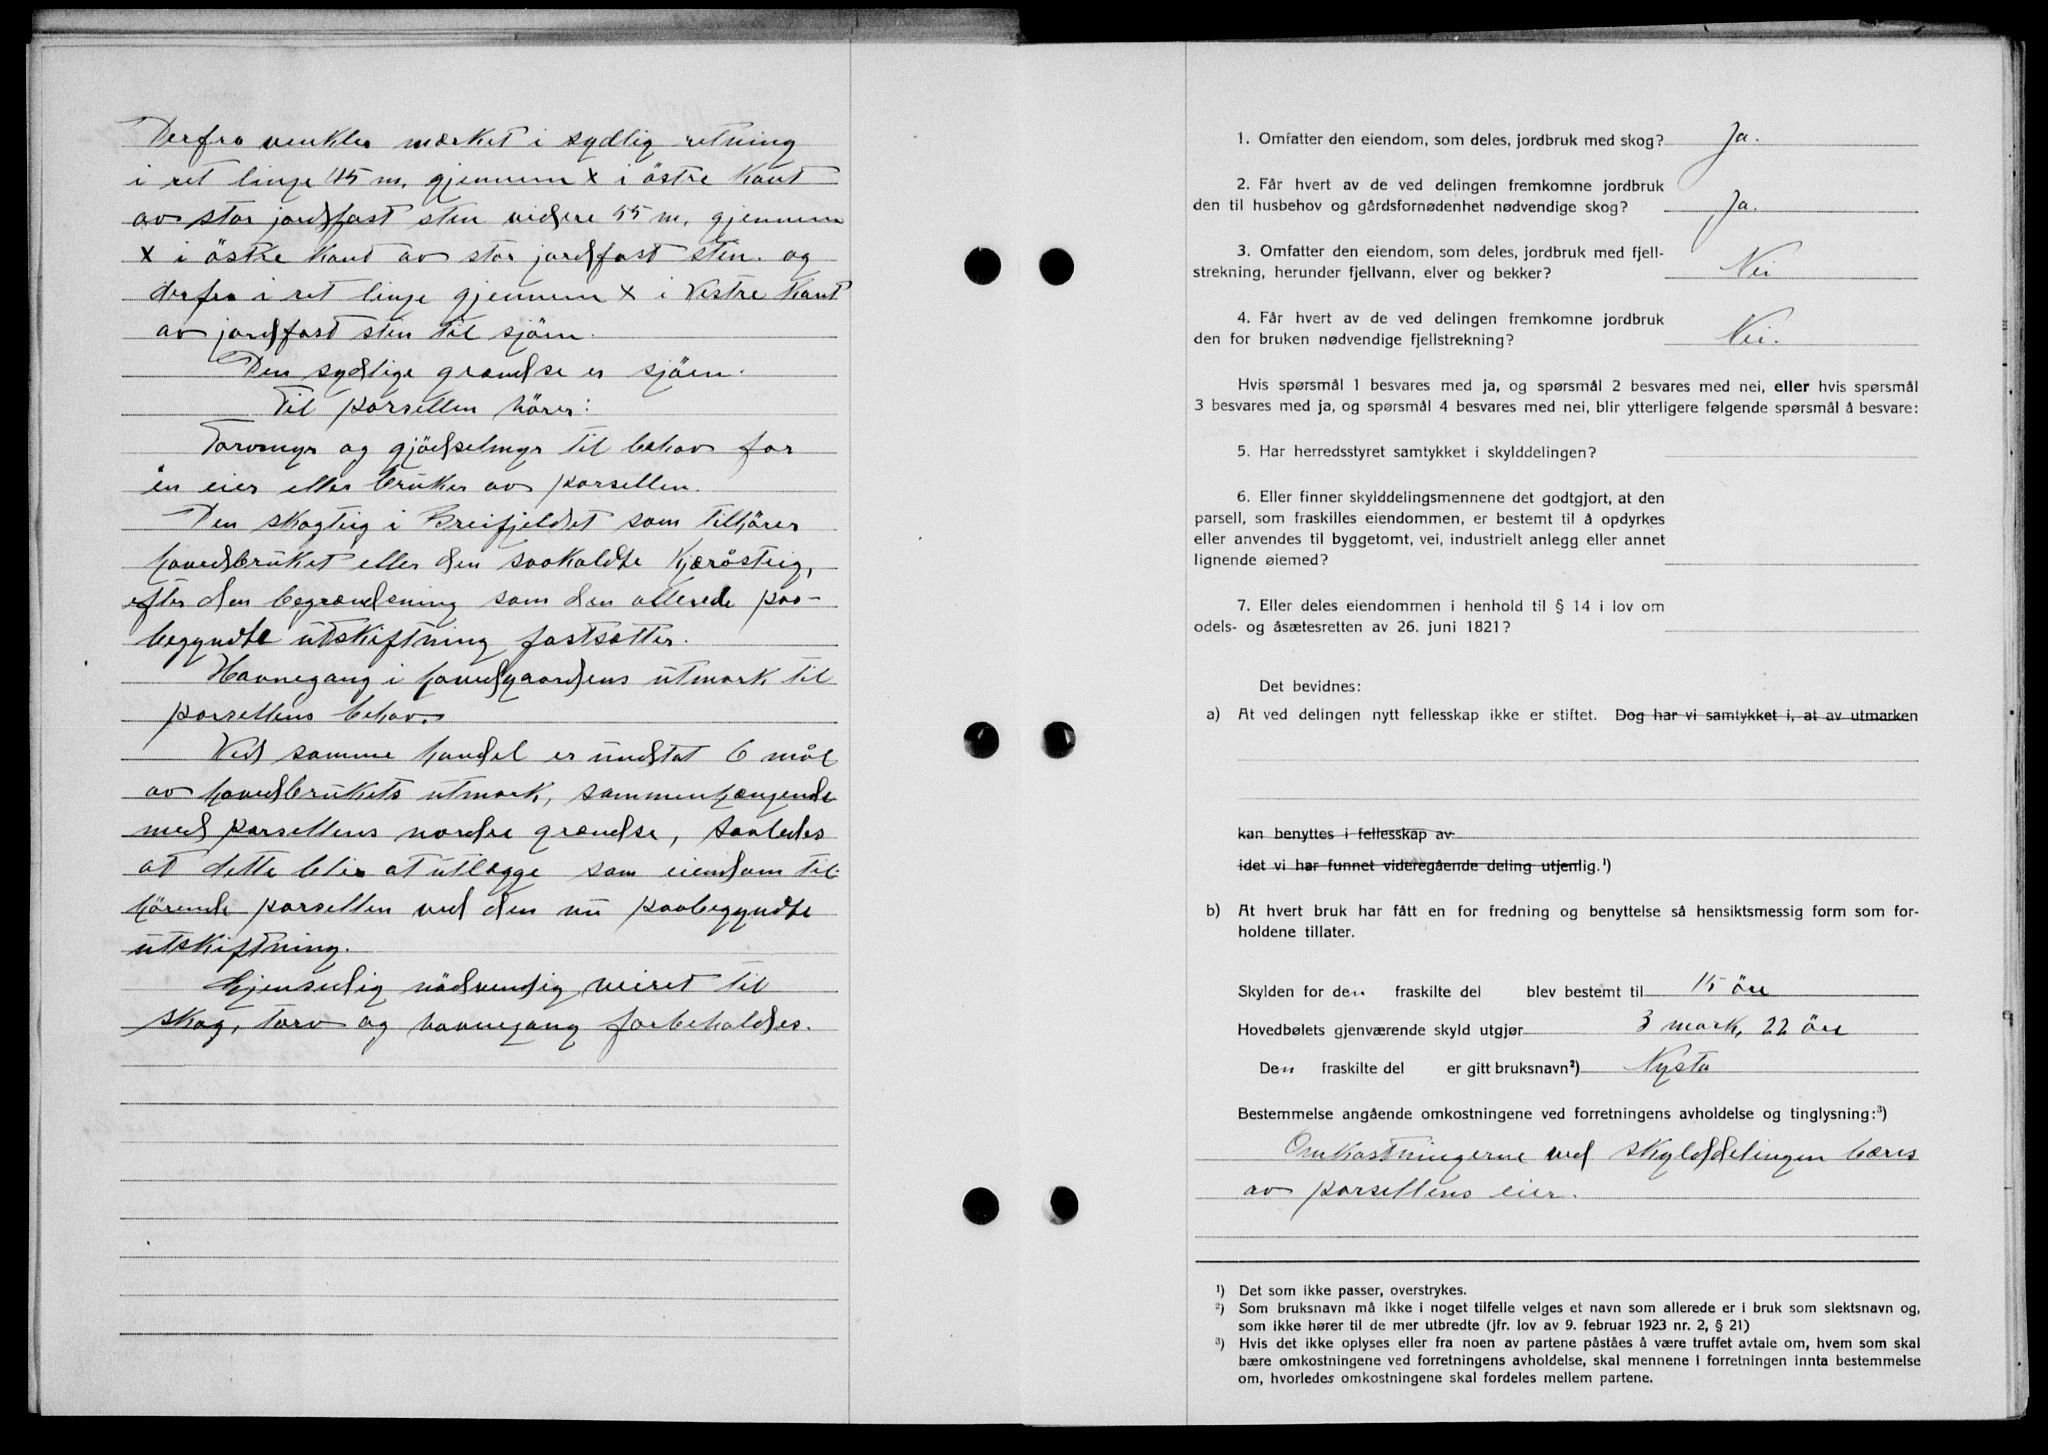 Derfra vinkler mærket i sydlig retning
i ret linje 45 m. gjennem x i östre kant
av stor jordfast sten videre 55 m. gjennem
x i östre kant av stor jordfast sten. og
derfra i ret linje gjennem x i vestre kant
av jordfast sten til sjöen.
Den sydlige grændse er sjöen.
Til parsellen hörer:
Torvmyr og gjödselmyr til behov for
én eier eller bruker av parsellen.
Den skogteig i Breifjeldet som tilhörer
hovedbruket eller den saakaldte Kjæråsteig,
efter den begrændsning som den allerede paa-
begyndte utskiftning fastsætter.
Havnegang i hovedgaardens utmark til
parsellens behov.
Ved samme handel er undtat 6 mål
av hovedbrukets utmark, sammenhængende
med parsellens nordre grændse, saaledes
at dette blir at utlægge som eiendom til-
hörende parsellen ved den nu paabegyndte
utskiftning.
Gjensidig nödvendig veiret til
skog, torv og havnegang forbeholdes.
1. Omfatter den eiendom, som deles, jordbruk med skog? Ja.
2. Får hvert av de ved delingen fremkomne jordbruk
den til husbehov og gårdsfornødenhet nødvendige skog? Ja.
3. Omfatter den eiendom, som deles, jordbruk med fjell-
strekning, herunder fjellvann, elver og bekker? Nei
4. Får hvert av de ved delingen fremkomne jordbruk
den for bruken nødvendige fjellstrekning? Nei.
Hvis spørsmål 1 besvares med ja, og spørsmål 2 besvares med nei, eller hvis spørsmål
3 besvares med ja, og spørsmål 4 besvares med nei, blir ytterligere følgende spørsmål å besvare:
5. Har herredsstyret samtykket i skylddelingen?
6. Eller finner skylddelingsmennene det godtgjort, at den
parsell, som fraskilles eiendommen, er bestemt til å opdyrkes
eller anvendes til byggetomt, vei, industrielt anlegg eller annet
lignende øiemed?
7. Eller deles eiendommen i henhold til § 14 i lov om
odels- og åsætesretten av 26. juni 1821?
Det bevidnes:
a) At ved delingen nytt fellesskap ikke er stiftet. Dog har vi samtykket i, at av utmarken
kan benyttes i fellesskap av
idet vi har funnet videregående deling utjenlig.¹)
b) At hvert bruk har fått en for fredning og benyttelse så hensiktsmessig form som for-
holdene tillater.
Skylden for den fraskilte del blev bestemt til 15 öre
Hovedbølets gjenværende skyld utgjør 3 mark, 22 öre
Den fraskilte del er gitt bruksnavn²) Nysta
Bestemmelse angående omkostningene ved forretningens avholdelse og tinglysning:³)
Omkostningerne ved skylddelingen bæres
av parsellens eier.
¹) Det som ikke passer, overstrykes.
²) Som bruksnavn må ikke i noget tilfelle velges et navn som allerede er i bruk som slektsnavn og,
som ikke hører til de mer utbredte (jfr. lov av 9. februar 1923 nr. 2, § 21)
³) Hvis det ikke oplyses eller fra noen av partene påståes å være truffet avtale om, hvem som skal
bære omkostningene ved forretningens avholdelse, skal mennene i forretningen innta bestemmelse
om, hvorledes omkostningene skal fordeles mellem partene.